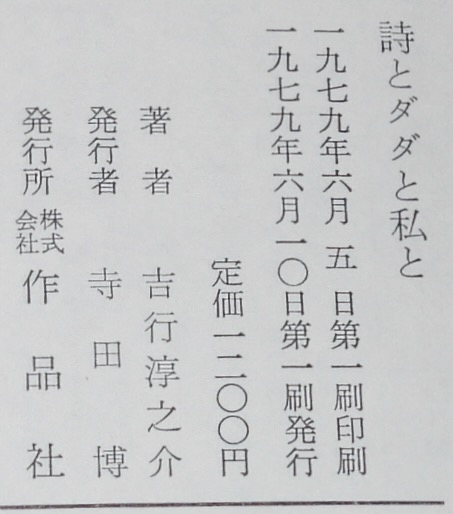 詩とダダと私と
一九七九年六月 五 日第一刷印刷
一九七九年六月一〇日第一刷発行
定価一二〇〇円
著者 吉行淳之介
発行者 寺田博
発行所 株式会社 作品社